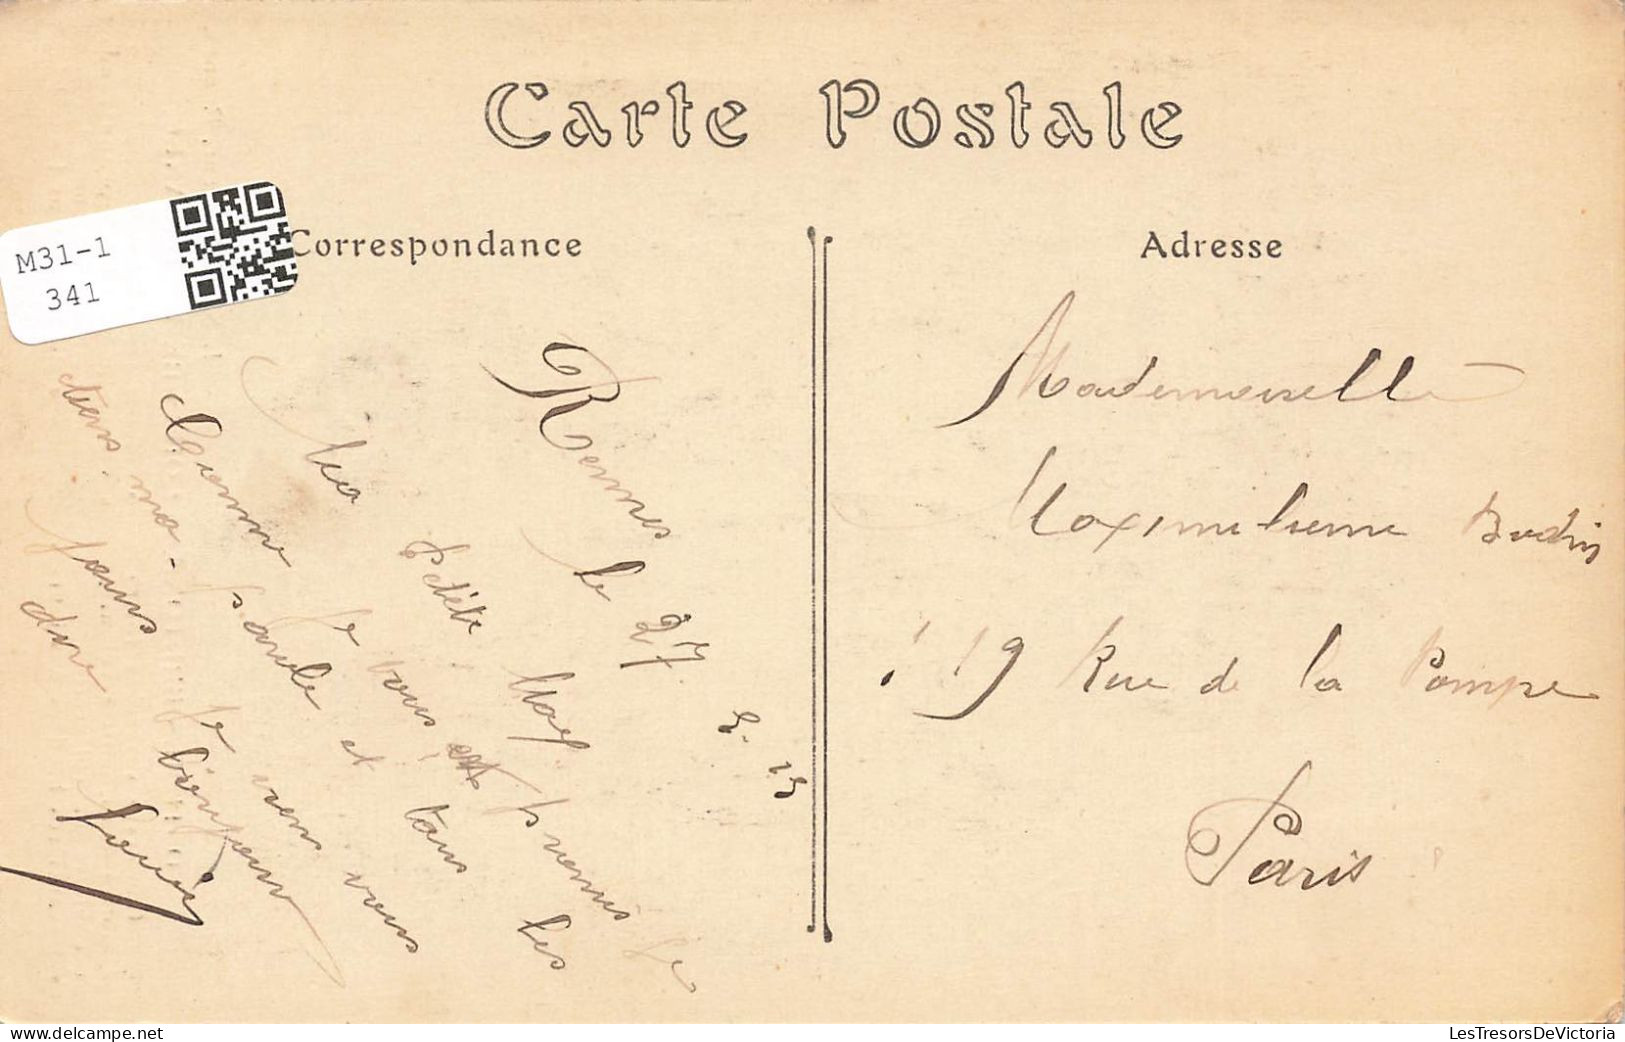 Carte Postale
M31-1
341
Correspondance
Adresse
Rennes le 27. 5. 15
Ma Petite May
Comme je vous est promis je
tiens ma parole et tous les
jours je viens vous
dire bonjour
Mademoiselle
Maximilienne Budin
119 Rue de la Pompe
Paris
delcampe.net
LesTresorsDeVictoria